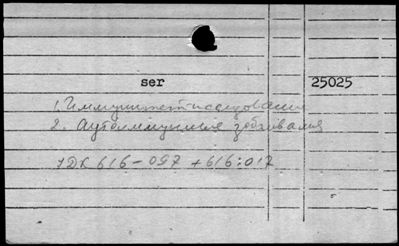 ser 25025
1. Иммунитет-исследование
2. Аутоиммунные заболевания
УДК 616-097 + 616:012